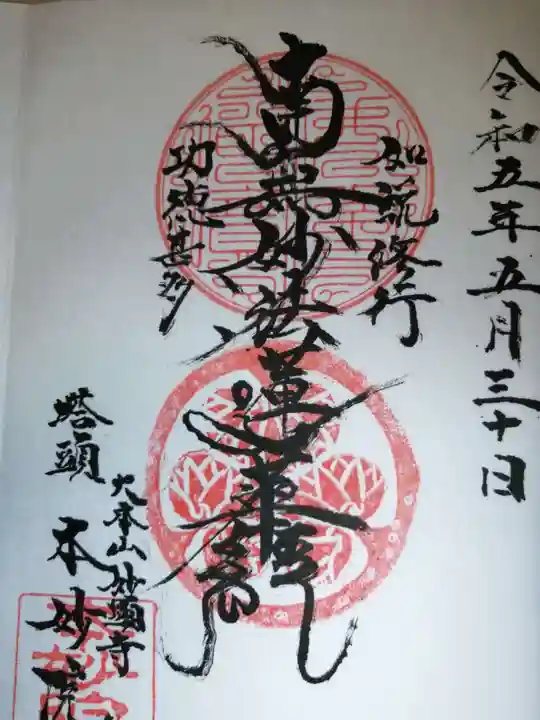 令和五年五月三十日
如説修行
南無妙法蓮華経
功徳甚多
大本山妙顯寺
塔頭 本妙院